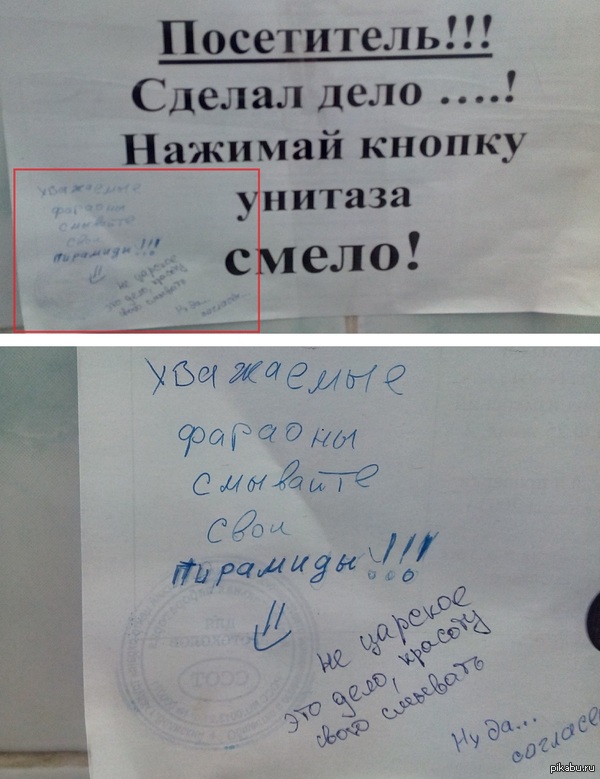 Посетитель!!!
Сделал дело ....!
Нажимай кнопку
унитаза
смело!
уважаемые
фараоны
смывайте
свои
пирамиды!!!
не царское
это дело, красоту
свою смывать
Ну да...
Уважаемые
фараоны
смывайте
свои
пирамиды!!!
не царское
это дело, красоту
свого смывать
Ну да...
согласе
ССОТ
pikabu.ru